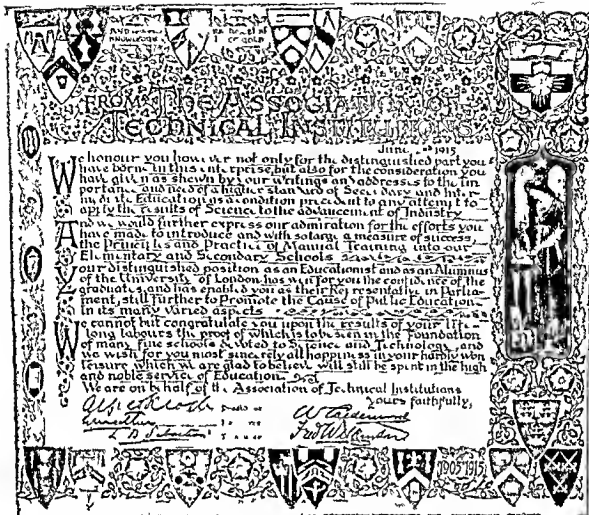 AND
KNOWLEDGE
OF GOLD
FROM THE ASSOCIATION OF
TECHNICAL INSTITUTIONS
June 1915
We honour you however not only for the distinguished part you
have borne in this enterprise, but also for the consideration you
have given as shewn by your writings an addresses to the Im
portance and need of a higher standard of Secondary and Inter
mediate Education as a condition precedent to any attempt to
apply the results of Science to the advancement of Industry
And we would further express our admiration for the efforts you
have made to introduce and with so large a measure of success,
the Principles and Practice of Manual Training into our
Elementary and Secondary Schools
Your distinguished position as an Educationist and as an Alumnus
of the University of London has won for you the confidence of the
graduates and has enabled you as their Representative in Parlia-
ment, still further to Promote the Cause of Public Education
In its many varied aspects
We cannot but congratulate you upon the results of your life-
long labours the proof of which is to be seen in the Foundation
of many fine schools devoted to Science and Technology and
we wish for you most sincerely all happiness in your hardly won
leisure which we are glad to believe will still be spent in the high
and noble service of Education.
We are on behalf of the Association of Technical Institutions
Yours faithfully,
1905 1915